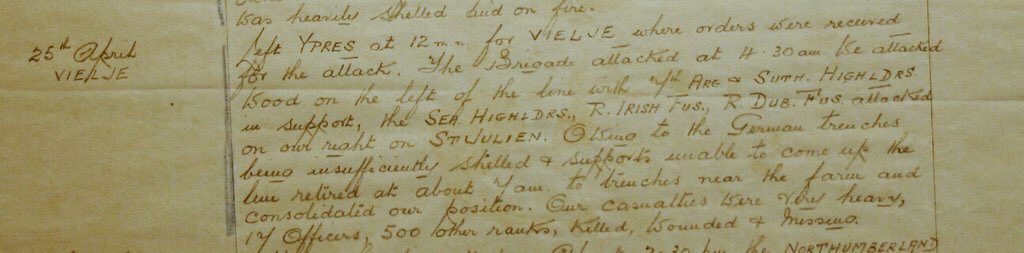 was heavily shelled and on fire.
25th April
VIELJE
Left YPRES at 12 m.n. for VIELJE where orders were received
for the attack. The Brigade attacked at 4.30 am. We attacked
wood on the left of the line with 7th ARG & SUTH. HIGHLDRS.
in support, the SEA. HIGHLDRS., R. IRISH FUS., R. DUB. FUS. attacked
on our right on ST JULIEN. Owing to the German trenches
being insufficiently shelled & supports unable to come up the
line retired at about 7 am. to trenches near the farm and
consolidated our position. Our casualties were very heavy,
17 Officers, 500 other ranks, killed, wounded & missing.
7.30 pm the NORTHUMBERLAND